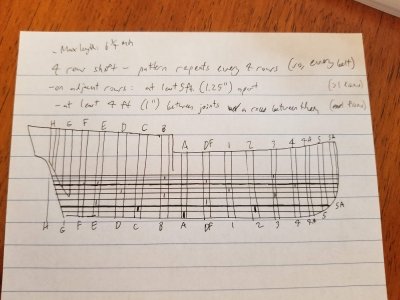 - Max length: 6 1/4 inch
4 row shift - pattern repeats every 4 rows (so, every belt)
- on adjacent rows: at least 5 ft (1.25") apart (>1 frame)
- at least 4 ft (1") between joints a row between them
H G F E D C B A DF 1 2 3 4 4A 5 5A
H G F E D C B A DF 1 2 3 4 4A 5 5A